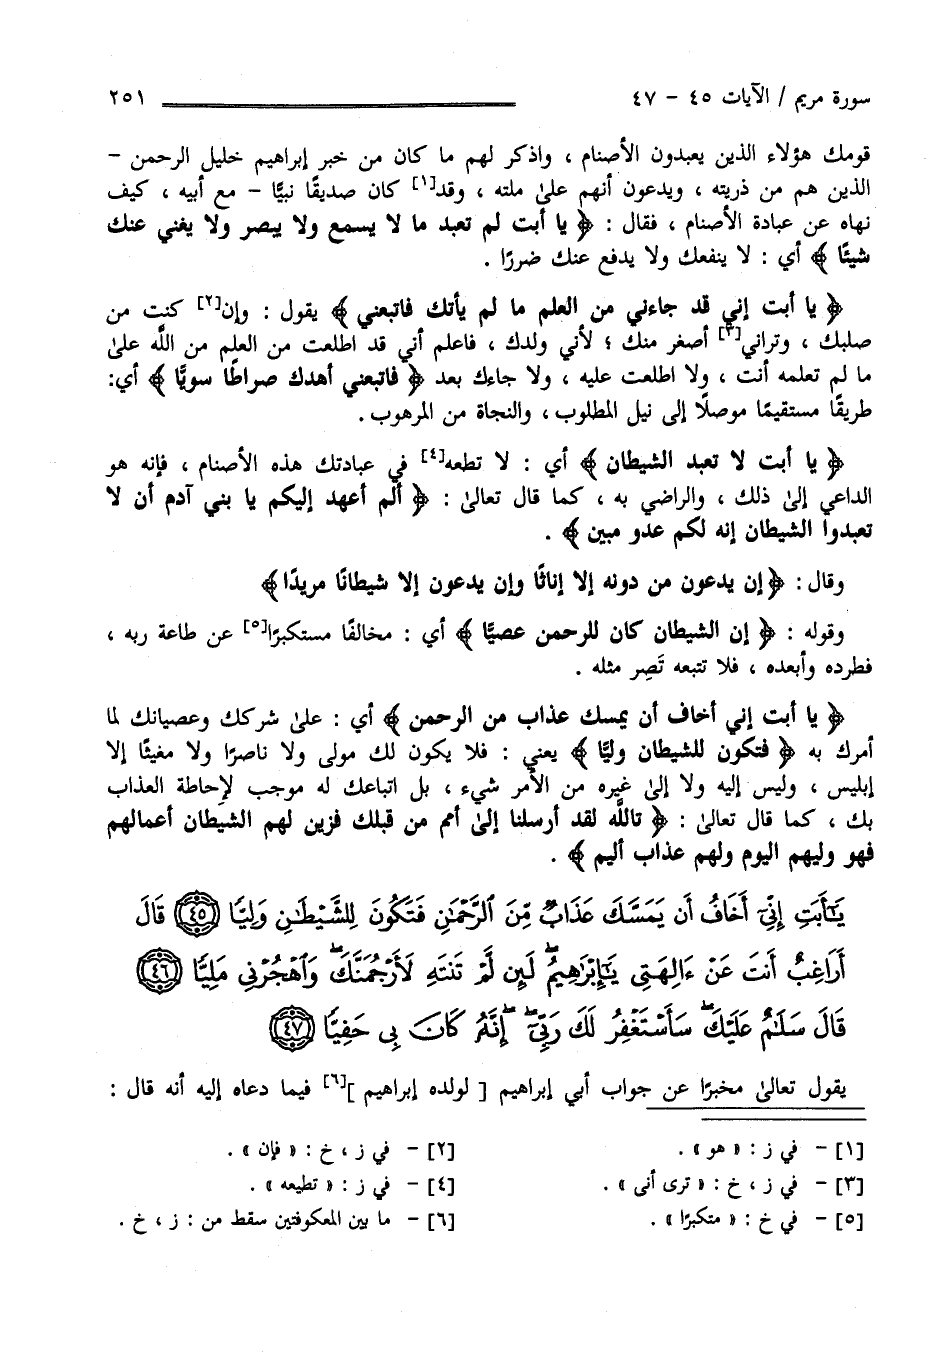 سورة مريم / الآيات ٤٥ - ٤٧ ٢٥١
قومك هؤلاء الذين يعبدون الأصنام ، واذكر لهم ما كان من خبر إبراهيم خليل الرحمن -
الذين هم من ذريته ، ويدعون أنهم علىٰ ملته ، وقد[١] كان صديقًا نبيًّا - مع أبيه ، كيف
نهاه عن عبادة الأصنام ، فقال : ﴿ يا أبت لم تعبد ما لا يسمع ولا يبصر ولا يغني عنك
شيئًا ﴾ أي : لا ينفعك ولا يدفع عنك ضررًا .
﴿ يا أبت إني قد جاءني من العلم ما لم يأتك فاتبعني ﴾ يقول : وإن[٢] كنت من
صلبك ، وتراني[٣] أصغر منك ؛ لأني ولدك ، فاعلم أني قد اطلعت من العلم من اللَّه علىٰ
ما لم تعلمه أنت ، ولا اطلعت عليه ، ولا جاءك بعد ﴿ فاتبعني أهدك صراطًا سويًّا ﴾ أي:
طريقًا مستقيمًا موصلًا إلى نيل المطلوب ، والنجاة من المرهوب .
﴿ يا أبت لا تعبد الشيطان ﴾ أي : لا تطعه[٤] في عبادتك هذه الأصنام ، فإنه هو
الداعي إلىٰ ذلك ، والراضي به ، كما قال تعالىٰ : ﴿ ألم أعهد إليكم يا بني آدم أن لا
تعبدوا الشيطان إنه لكم عدو مبين ﴾ .
وقال : ﴿إن يدعون من دونه إلا إناثًا وإن يدعون إلا شيطانًا مريدًا﴾
وقوله : ﴿ إن الشيطان كان للرحمن عصيًّا ﴾ أي : مخالفًا مستكبرًا[٥] عن طاعة ربه ،
فطرده وأبعده ، فلا تتبعه تَصِر مثله .
﴿ يا أبت إني أخاف أن يمسك عذاب من الرحمن ﴾ أي : علىٰ شركك وعصيانك لما
أمرك به ﴿ فتكون للشيطان وليًّا ﴾ يعني : فلا يكون لك مولى ولا ناصرًا ولا مغيثًا إلا
إبليس ، وليس إليه ولا إلىٰ غيره من الأمر شيء ، بل اتباعك له موجب لإحاطة العذاب
بك ، كما قال تعالىٰ : ﴿ تاللَّه لقد أرسلنا إلىٰ أمم من قبلك فزين لهم الشيطان أعمالهم
فهو وليهم اليوم ولهم عذاب أليم ﴾ .
يَٰٓأَبَتِ إِنِّىٓ أَخَافُ أَن يَمَسَّكَ عَذَابٌ مِّنَ ٱلرَّحْمَٰنِ فَتَكُونَ لِلشَّيْطَٰنِ وَلِيًّا ٤٥ قَالَ
أَرَاغِبٌ أَنتَ عَنْ ءَالِهَتِى يَٰٓإِبْرَٰهِيمُ ۖ لَئِن لَّمْ تَنتَهِ لَأَرْجُمَنَّكَ ۖ وَٱهْجُرْنِى مَلِيًّا ٤٦
قَالَ سَلَٰمٌ عَلَيْكَ ۖ سَأَسْتَغْفِرُ لَكَ رَبِّىٓ ۖ إِنَّهُۥ كَانَ بِى حَفِيًّا ٤٧
يقول تعالىٰ مخبرًا عن جواب أبي إبراهيم [ لولده إبراهيم ][٦] فيما دعاه إليه أنه قال :
[١] - في ز : « هو » . [٢] - في ز ، خ : « فإن » .
[٣] - في ز ، خ : « ترى أنى » . [٤] - في ز : « تطيعه » .
[٥] - في خ : « متكبرًا » . [٦] - ما بين المعكوفتين سقط من : ز ، خ .